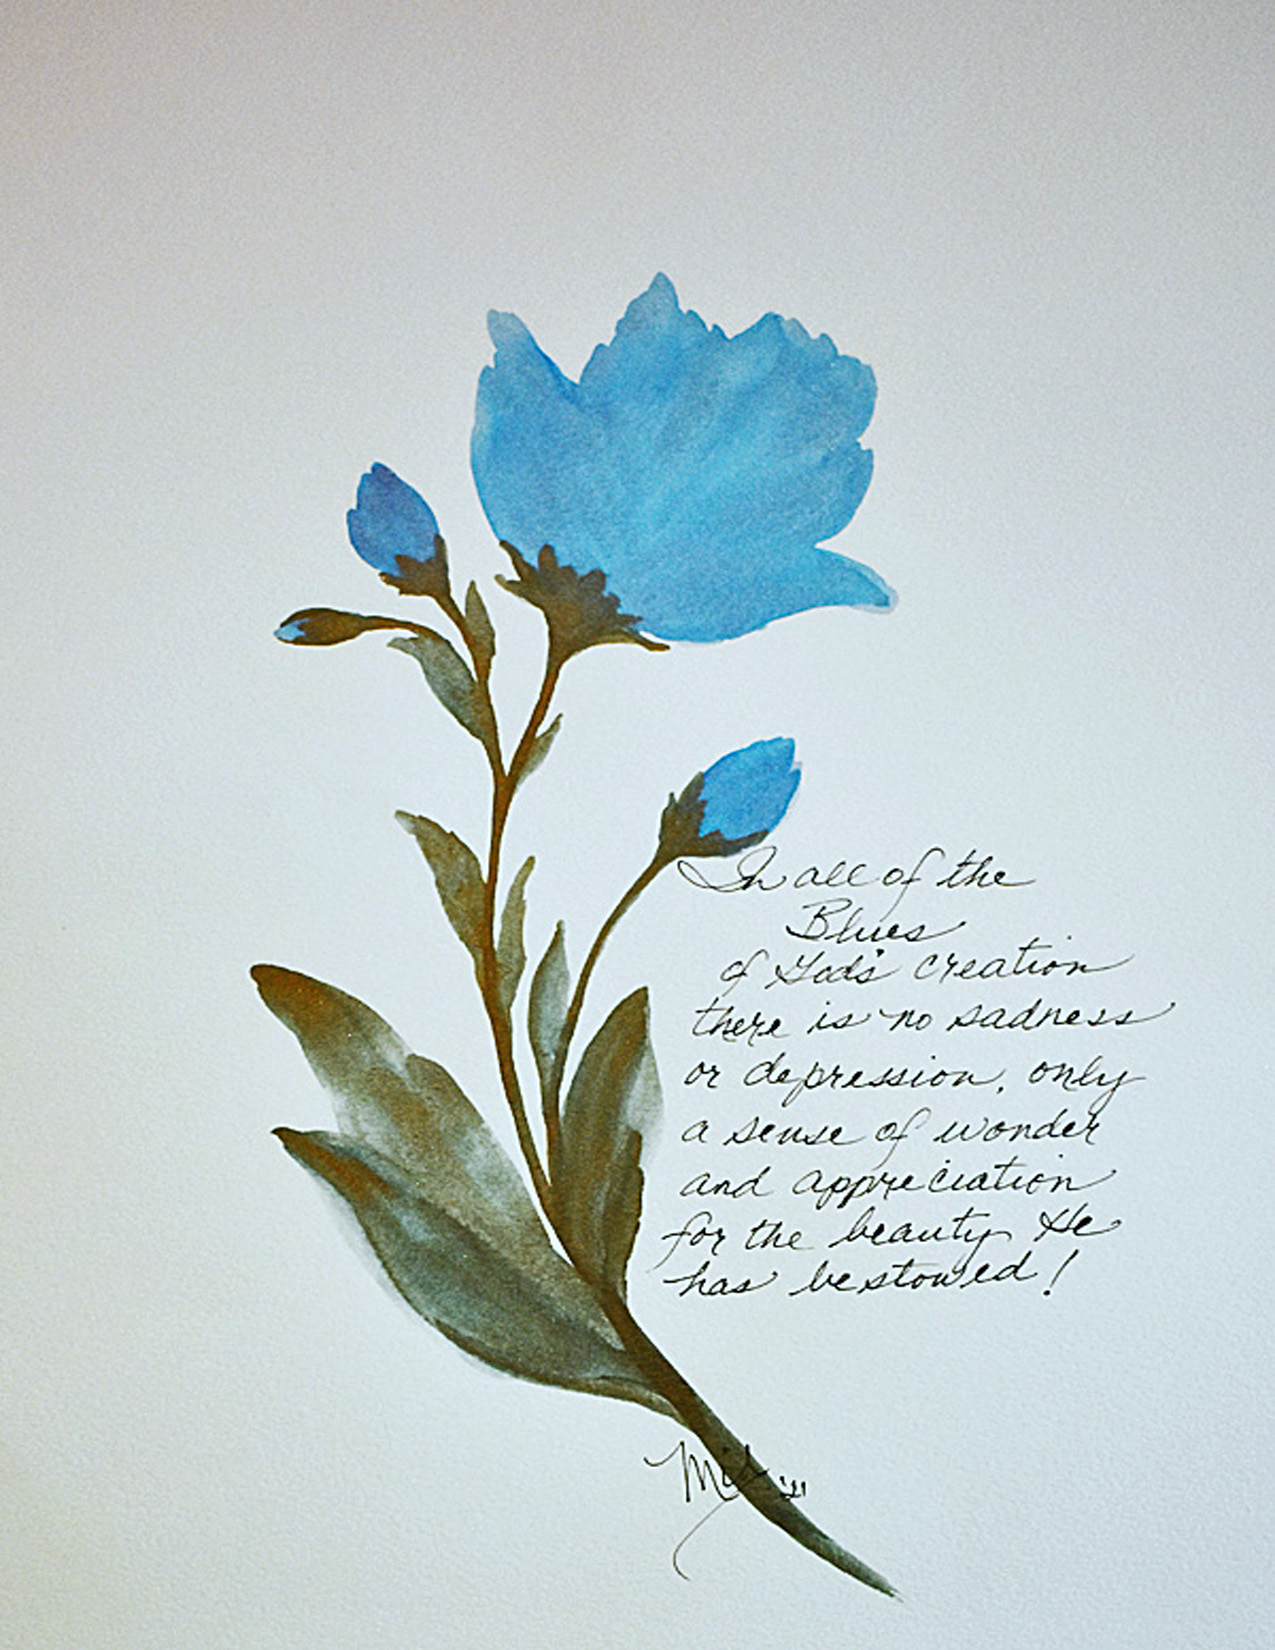 In all of the
Blues
of God's creation
there is no sadness
or depression, only
a sense of wonder
and appreciation
for the beauty He
has bestowed!
'21